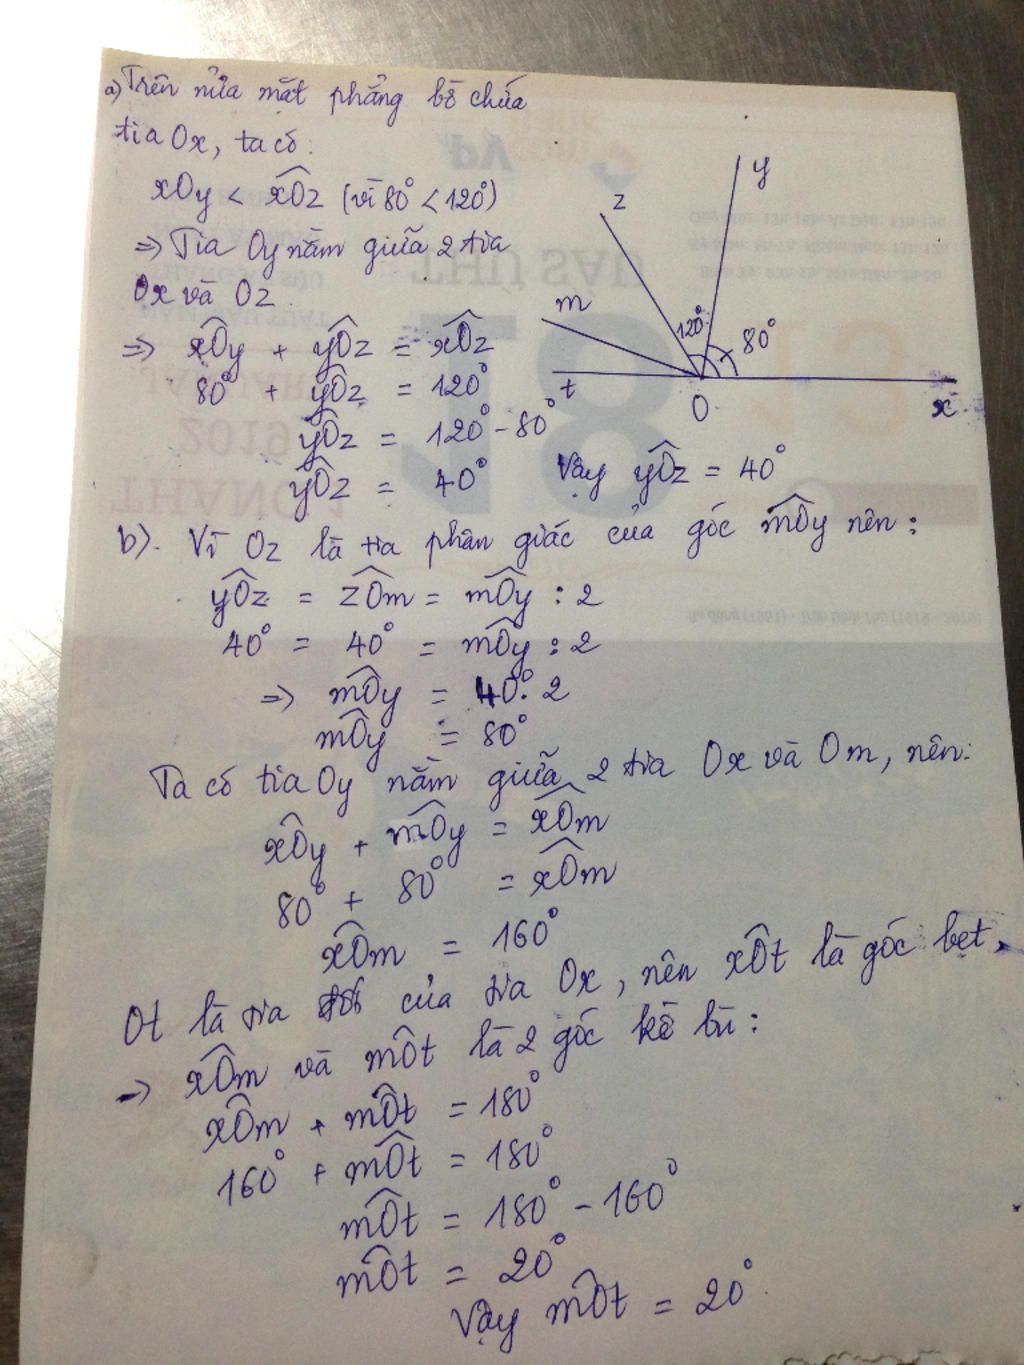 a) Trên nửa mặt phẳng bờ chứa
tia Ox, ta có:
xOy < xÔz (vì 80° < 120°)
=> Tia Oy nằm giữa 2 tia
Ox và Oz.
=> xÔy + yÔz = xÔz
80° + yÔz = 120°
yÔz = 120° - 80°
yÔz = 40° Vậy yÔz = 40°
z
y
m
120°
80°
t
O
x
b). Vì Oz là tia phân giác của góc mÔy nên:
yÔz = zÔm = mÔy : 2
40° = 40° = mÔy : 2
=> mÔy = 40°. 2
mÔy = 80°
Ta có tia Oy nằm giữa 2 tia Ox và Om, nên:
xÔy + mÔy = xÔm
80° + 80° = xÔm
xÔm = 160°
Ot là tia đối của tia Ox, nên xÔt là góc bẹt,
=> xÔm và mÔt là 2 góc kề bù:
xÔm + mÔt = 180°
160° + mÔt = 180°
mÔt = 180° - 160°
mÔt = 20°
Vậy mÔt = 20°